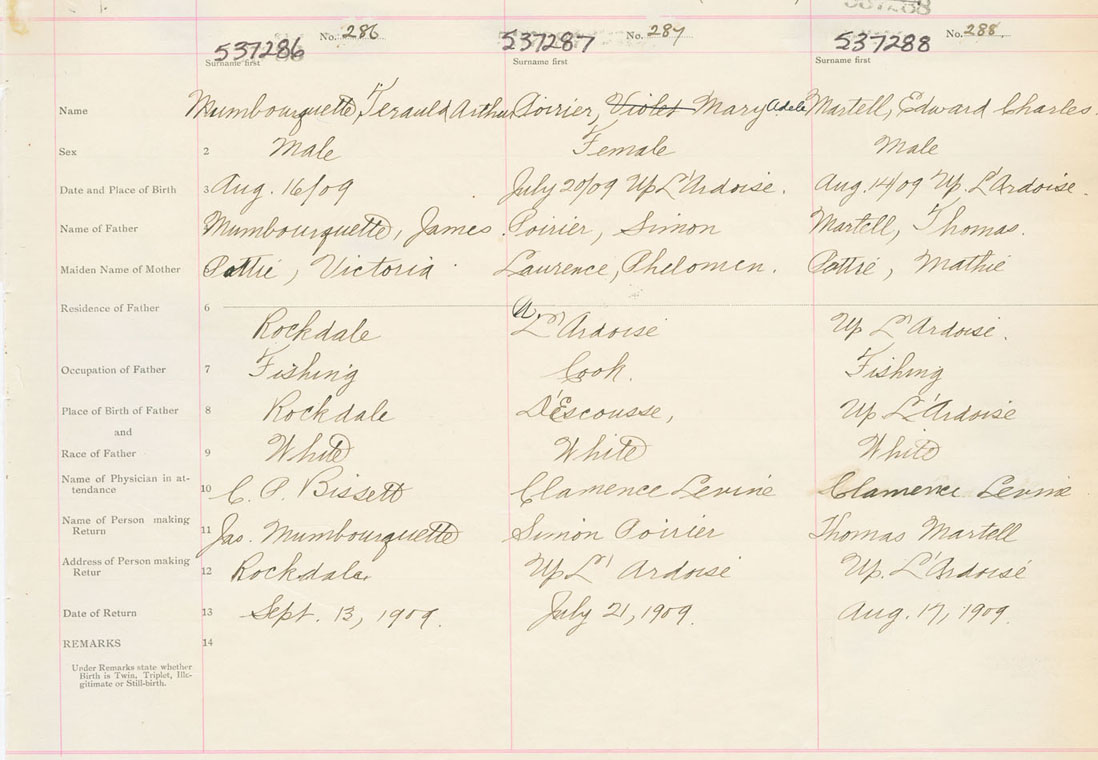 537288
No. 286 No. 287 No. 288
537286 537287 537288
Surname first Surname first Surname first
Name Mumbourquette, Jerauld Arthur Poirier, Violet Mary Adele Martell, Edward Charles.
Sex 2 Male Female Male
Date and Place of Birth 3 Aug. 16/09 July 20/09 Up L'Ardoise. Aug. 14/09 Up. L'Ardoise.
Name of Father Mumbourquette, James. Poirier, Simon Martell, Thomas.
Maiden Name of Mother Pottie, Victoria Laurence, Phelomen. Pottie, Mathie
Residence of Father 6
Rockdale L'Ardoise Up L'Ardoise.
Occupation of Father 7 Fishing Cook. Fishing
Place of Birth of Father 8 Rockdale D'Escousse, Up L'Ardoise
and
Race of Father 9 White White White
Name of Physician in at-
tendance 10 C. P. Bissett Clamence Levine Clamence Levine
Name of Person making
Return 11 Jas. Mumbourquette Simon Poirier Thomas Martell
Address of Person making
Retur 12 Rockdale. Up L' Ardoise Up. L'Ardoise
Date of Return 13 Sept. 13, 1909. July 21, 1909. Aug. 17, 1909.
REMARKS 14
Under Remarks state whether
Birth is Twin, Triplet, Ille-
gitimate or Still-birth.